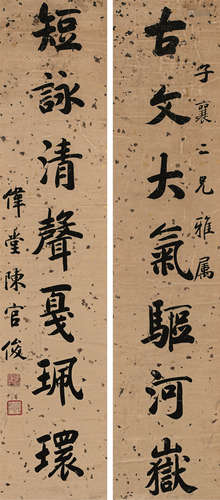 古文大氣驅河嶽
子襄二兄雅属
短詠清聲戛珮環
偉堂陳官俊